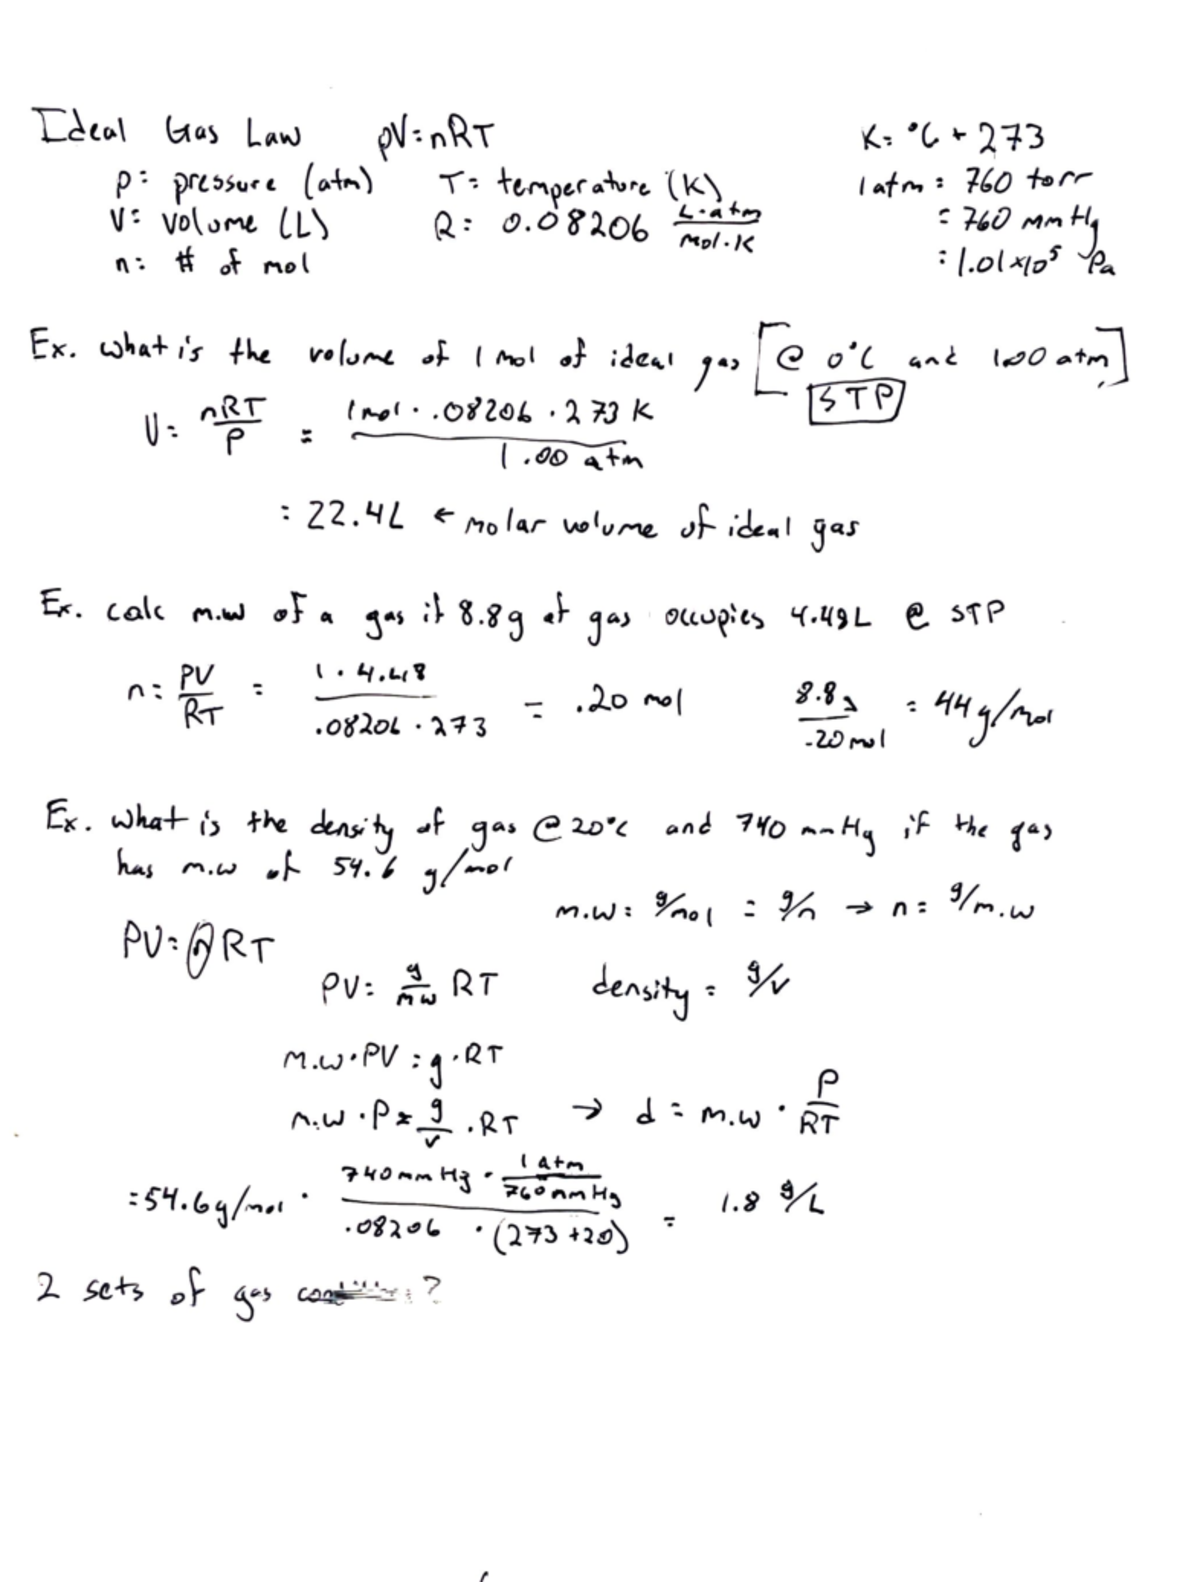 Ideal Gas Law pV=nRT K= °C + 273
P= pressure (atm) T= temperature (K) 1 atm = 760 torr
V= volume (L) R= 0.08206 L·atm/mol·K = 760 mmHg
n= # of mol = 1.01×10⁵ Pa
Ex. what is the volume of 1 mol of ideal gas [@ 0°C and 1.00 atm]
STP
V= nRT/P = 1 mol · .08206 · 273 K / 1.00 atm
= 22.4L ← molar volume of ideal gas
Ex. calc m.w of a gas if 8.8g of gas occupies 4.48L @ STP
n= PV/RT = 1 · 4.48 / .08206 · 273 = .20 mol 8.8g/.20 mol = 44 g/mol
Ex. what is the density of gas @ 20°C and 740 mmHg if the gas
has m.w of 54.6 g/mol
m.w= g/mol = g/n → n= g/m.w
PV=nRT
PV= g/mw RT density = g/v
m.w·PV = g·RT
m.w·P = g/v ·RT → d = m.w · P/RT
=54.6g/mol · 740mmHg · 1 atm/760mmHg / .08206 · (273 +20) = 1.8 g/L
2 sets of gas ?